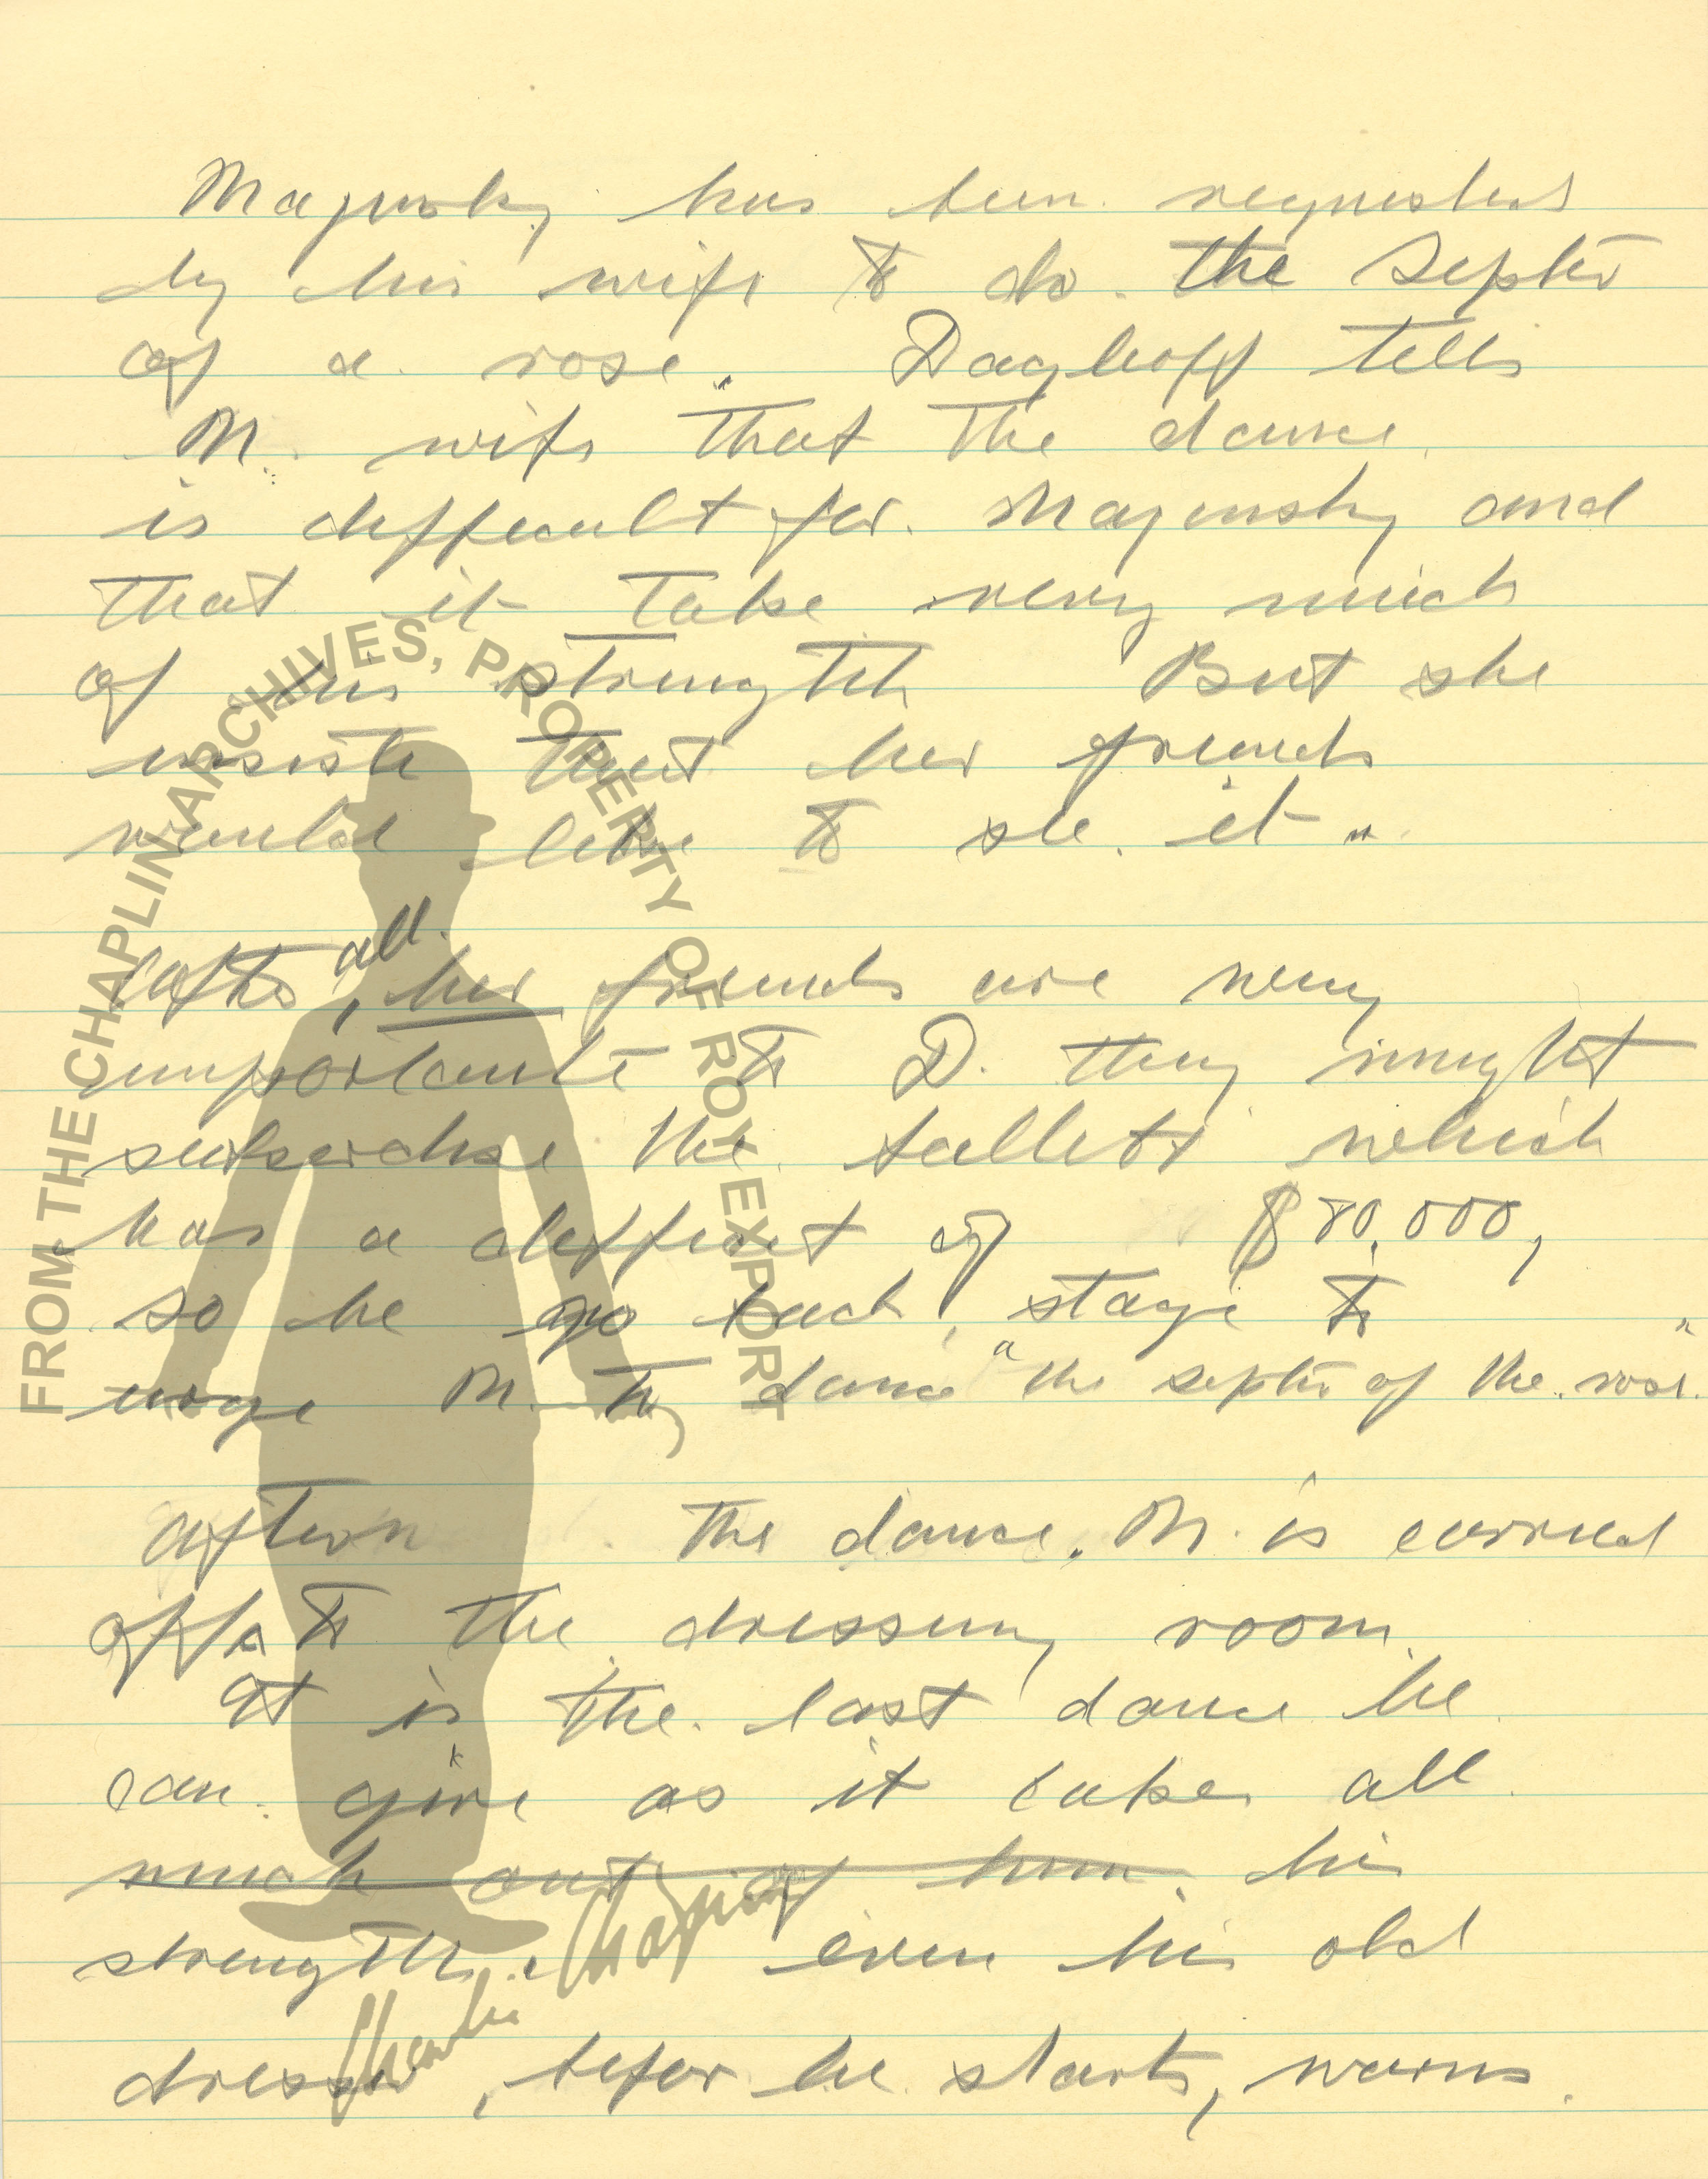 Majinsky has been requested
by his wife to do. the Septer
of a rose. Daghoff tells
M. wife that the dance
is difficult for. Majinsky and
that it take very much
of his strength But she
insists that her friends
would like to see it "
after all, her friends are very
importante to D. they might
the ballets which
has a defficit of $80,000,
so he go back stage to
urge M. to dance "the septer of the rose."
aftern the dance. M. is carried
off to the dressing room
It is the last dance he
can give as it takes all
much out of him. his
strength. even his old
dresser, befor he starts, warns.
FROM THE CHAPLIN ARCHIVES, PROPERTY OF ROY EXPORT
Charlie Chaplin